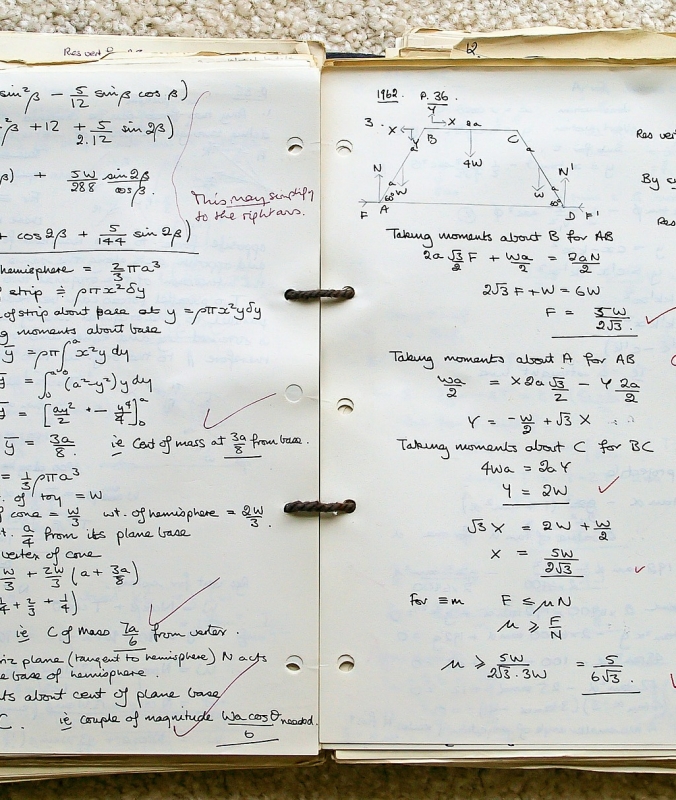 Res vert
sin²β − 5/12 sinβ cos β)
²β + 12 + 5/2.12 sin 2β)
β) + 5W/288 sin2β/cosβ.
This may simplify
to the right ans.
+ cos2β + 5/144 sin 2β)
hemisphere = 2/3 πa³
strip ≑ ρπx²δy
of strip about base at y = ρπx²yδy
g moments about base
ȳ = ρπ∫₀ᵃ x²y dy
ȳ = ∫₀ᵃ (a²−y²)y dy
ȳ = [ay²/2 + − y⁴/4]₀ᵃ
ȳ = 3a/8. ie Cent of mass at 3a/8 from base.
= 1/3 ρπa³
. of toy = W
f cone = W/3 wt. of hemisphere = 2W/3.
t. a/4 from its plane base
vertex of cone
W/3 + 2W/3 (a + 3a/8)
1/4 + 2/3 + 1/4)
ie C of mass 7a/6 from vertex.
riz plane (tangent to hemisphere) N acts
e base of hemisphere.
ts about cent of plane base
C. ie couple of magnitude Wa cosθ/6 needed.
12.
1962. P. 36.
3.
Y X 2a
X B C
Y a 4W a
N a W W a N'
F A 60° 60° D F'
Taking moments about B for AB
2a √3/2 F + Wa/2 = 2aN/2
2√3 F + W = 6W
F = 5W/2√3.
Taking moments about A for AB
Wa/2 = X 2a √3/2 − Y 2a/2
Y = −W/2 + √3 X
Taking moments about C for BC
4Wa = 2aY
Y = 2W
√3 X = 2W + W/2
X = 5W/2√3
For ≡m F ≤ μN
μ ≥ F/N
μ ≥ 5W/2√3.3W = 5/6√3.
Res ver
By
Res